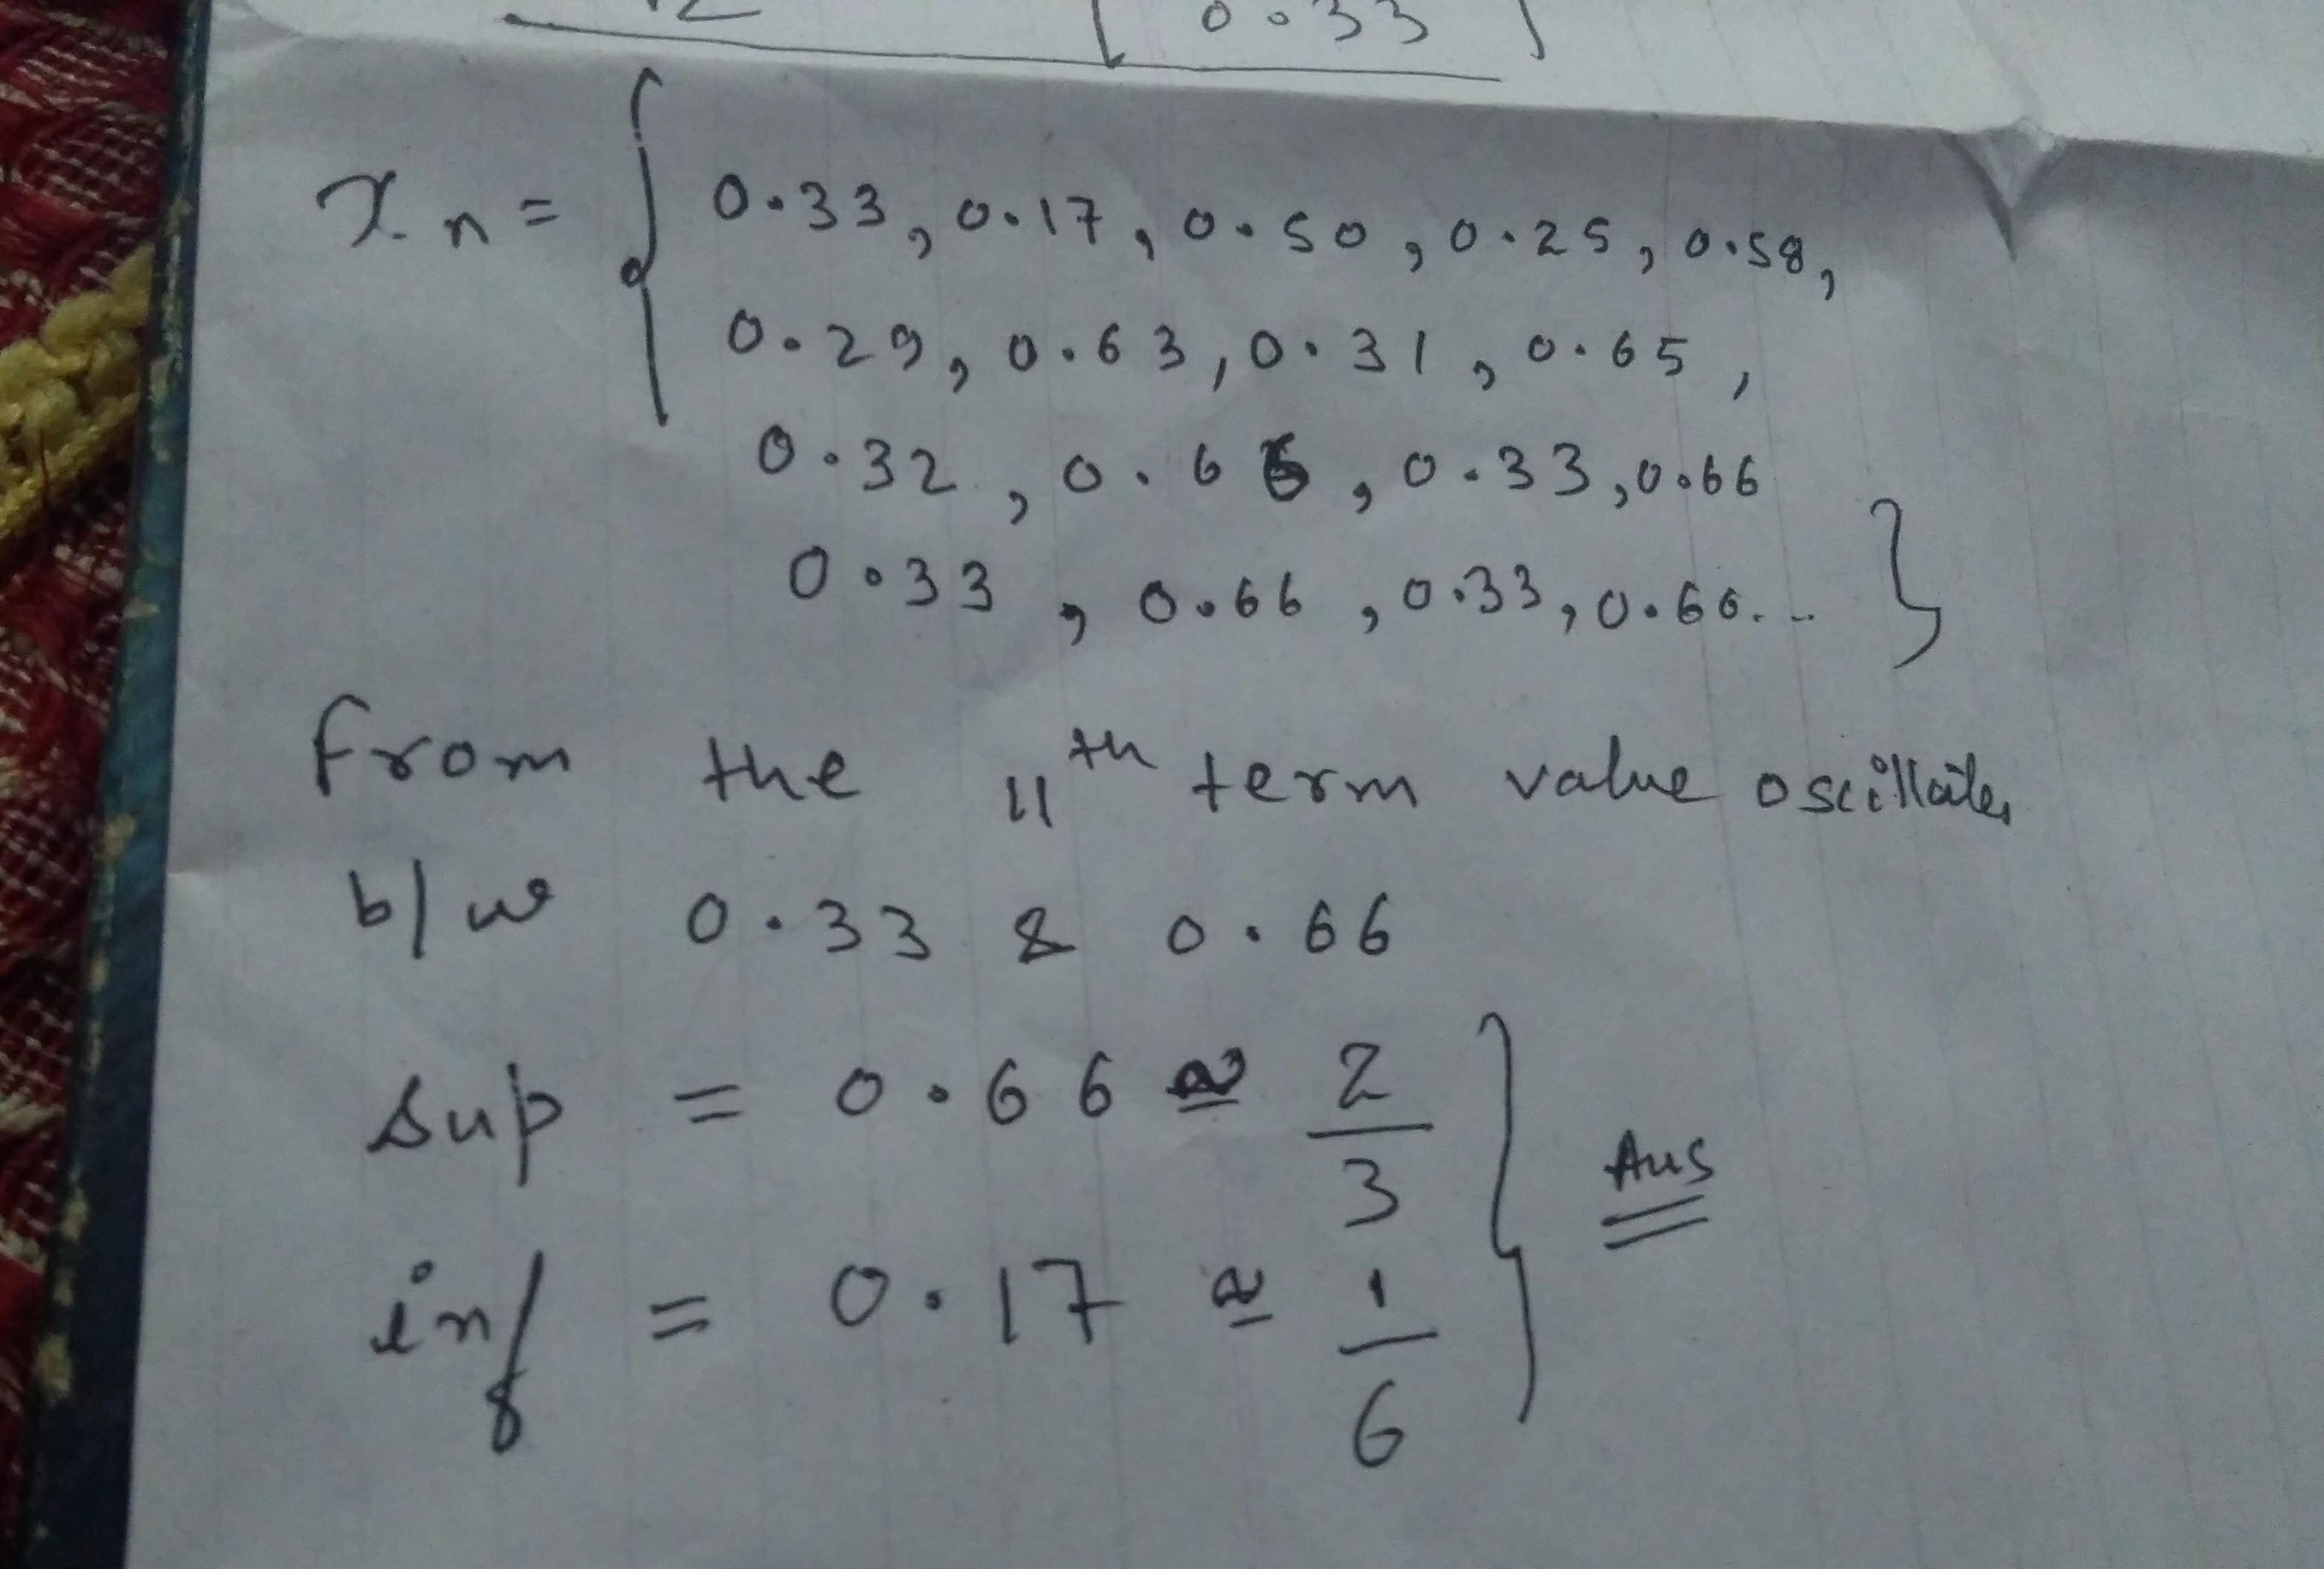 0.33
xₙ = { 0.33, 0.17, 0.50, 0.25, 0.58,
0.29, 0.63, 0.31, 0.65,
0.32, 0.66, 0.33, 0.66
0.33, 0.66, 0.33, 0.66... }
from the 11th term value oscillates
b/w 0.33 & 0.66
sup = 0.66 ≅ 2/3
inf = 0.17 ≅ 1/6
Ans